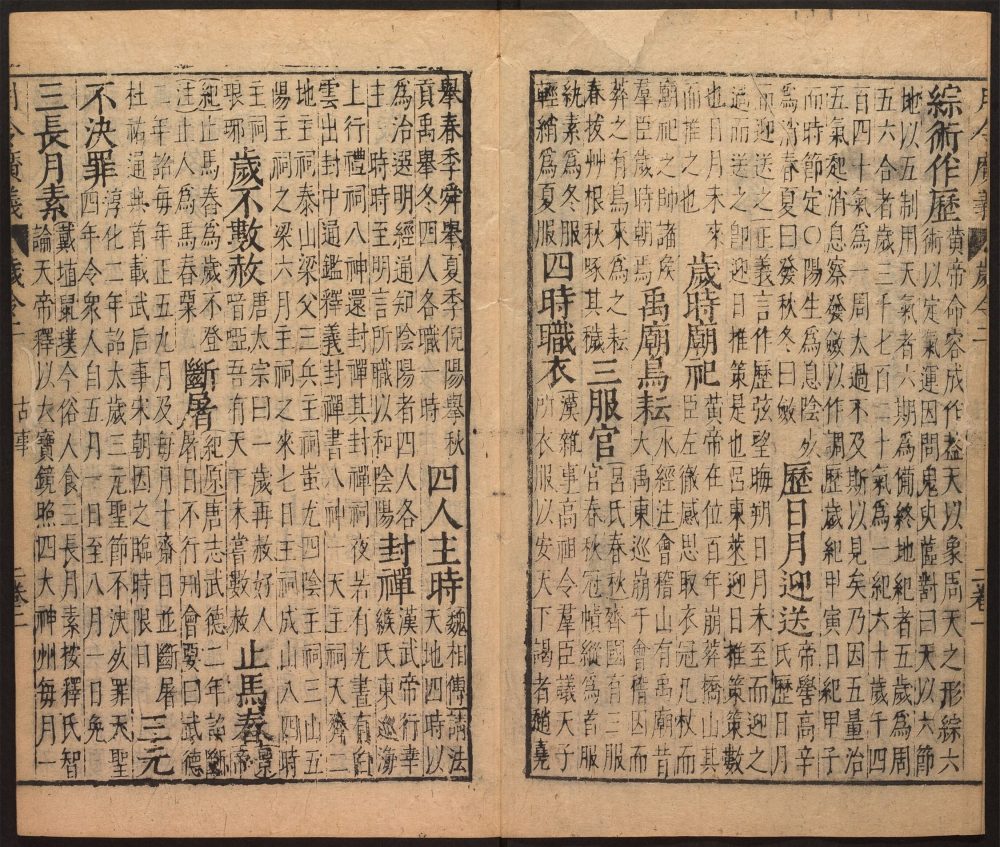 綜術作歷
黃帝命容成作蓋天以象周天之形綜六
術以定氣運因問鬼臾蓲對曰天以六節
地以五制用天氣者六期爲備終地紀者五歲爲周
五六合者歲三千七百二十氣爲一紀六十歲千四
百四十氣爲一周太過不及斯以見矣乃因五量治
五氣起消息察發斂以作調歷歲紀甲寅日紀甲子
而時節定〇陽生爲息陰𣦸
爲消春夏曰發秋冬曰斂
歷日月迎送
帝嚳高辛
氏歷日月
而迎送之正義言作歷弦望晦朔日月未至而迎之
過而送之即迎日推策是也呂東萊迎日推策策數
也日月未來
而推之也
歲時廟祀
黃帝在位百年崩葬橋山其
臣左徹感思取衣冠几杖而
廟祀之帥諸侯
羣臣歲時朝焉
禹廟鳥耘
水經注會稽山有禹廟昔
大禹東巡崩于會稽因而
葬之有鳥來爲之耘
春拔艸根秋啄其穢
三服官
呂氏春秋齊國有三服
官春秋冠幘縰爲首服
紈素爲冬服
輕綃爲夏服
四時職衣
漢雜事高祖令羣臣議天子
所衣服以安天下謁者趙堯
舉春季舜舉夏季倪陽舉秋
貢禹舉冬四人各職一時
四人主時
魏相傳請法
天地四時以
爲治選明經通知陰陽者四人各
主時時至明言所職以和陰陽
封禪
漢武帝行幸
緱氏東巡海
上行禮祠八神還封禪其封禪祠夜若有光晝有白
雲出封中通鑑釋義封禪書八神一天主祠天齊二
地主祠泰山梁父三兵主祠蚩尤四陰主祠三山五
陽主祠之罘六月主祠之來七日主祠成山八四時
主祠
琅邪
歲不數赦
唐太宗曰一歲再赦好人
喑啞吾有天下未嘗數赦
止馬舂
景
帝
紀止馬舂爲歲不登
注止人爲馬舂粟
斷屠
紀原唐志武德二年詔斷
屠日不行刑會要曰武德
二年詔每年正五九月及每月十齋日並斷屠
杜祐通典首載武后事宋朝因之臨時限日
三元
不決罪
淳化二年詔太歲三元聖節不決𣦸罪天聖
四年令衆人自五月一日至八月一日免
三長月素
戴埴鼠璞今俗人食三長月素按釋氏智
論天帝釋以大寶鏡照四大神州每月一